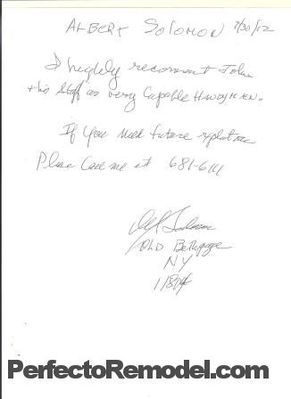 ALBERT SOLOMON 7/30/12
I highly recommend John
+ his staff as very Capable HANDYMEN.
If You need future
Please Call me at 681-614
Al Solomon
OLD Bethpage
NY
PerfectoRemodel.com